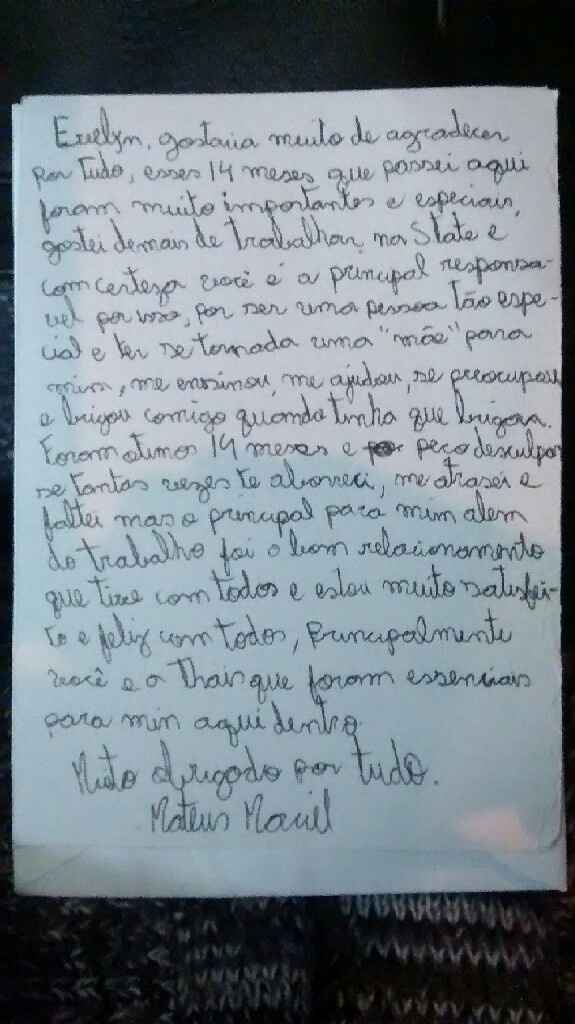 Evelyn, gostaria muito de agradecer
por tudo, esses 14 meses que passei aqui
foram muito importantes e especiais,
gostei demais de trabalhar na State e
com certeza você é a principal responsa-
vel por isso, por ser uma pessoa tão espe-
cial e ter se tornada uma "mãe" para
mim, me ensinou, me ajudou, se preocupou
e brigou comigo quando tinha que brigar.
Foram otimos 14 meses e peço desculpas
se tantas vezes te aborreci, me atrasei e
faltei mas o principal para mim alem
do trabalho foi o bom relacionamento
que tive com todos e estou muito satisfei-
to e feliz com todos, principalmente
você e a Thais que foram essenciais
para min aqui dentro.
Muito obrigado por tudo.
Mateus Maciel